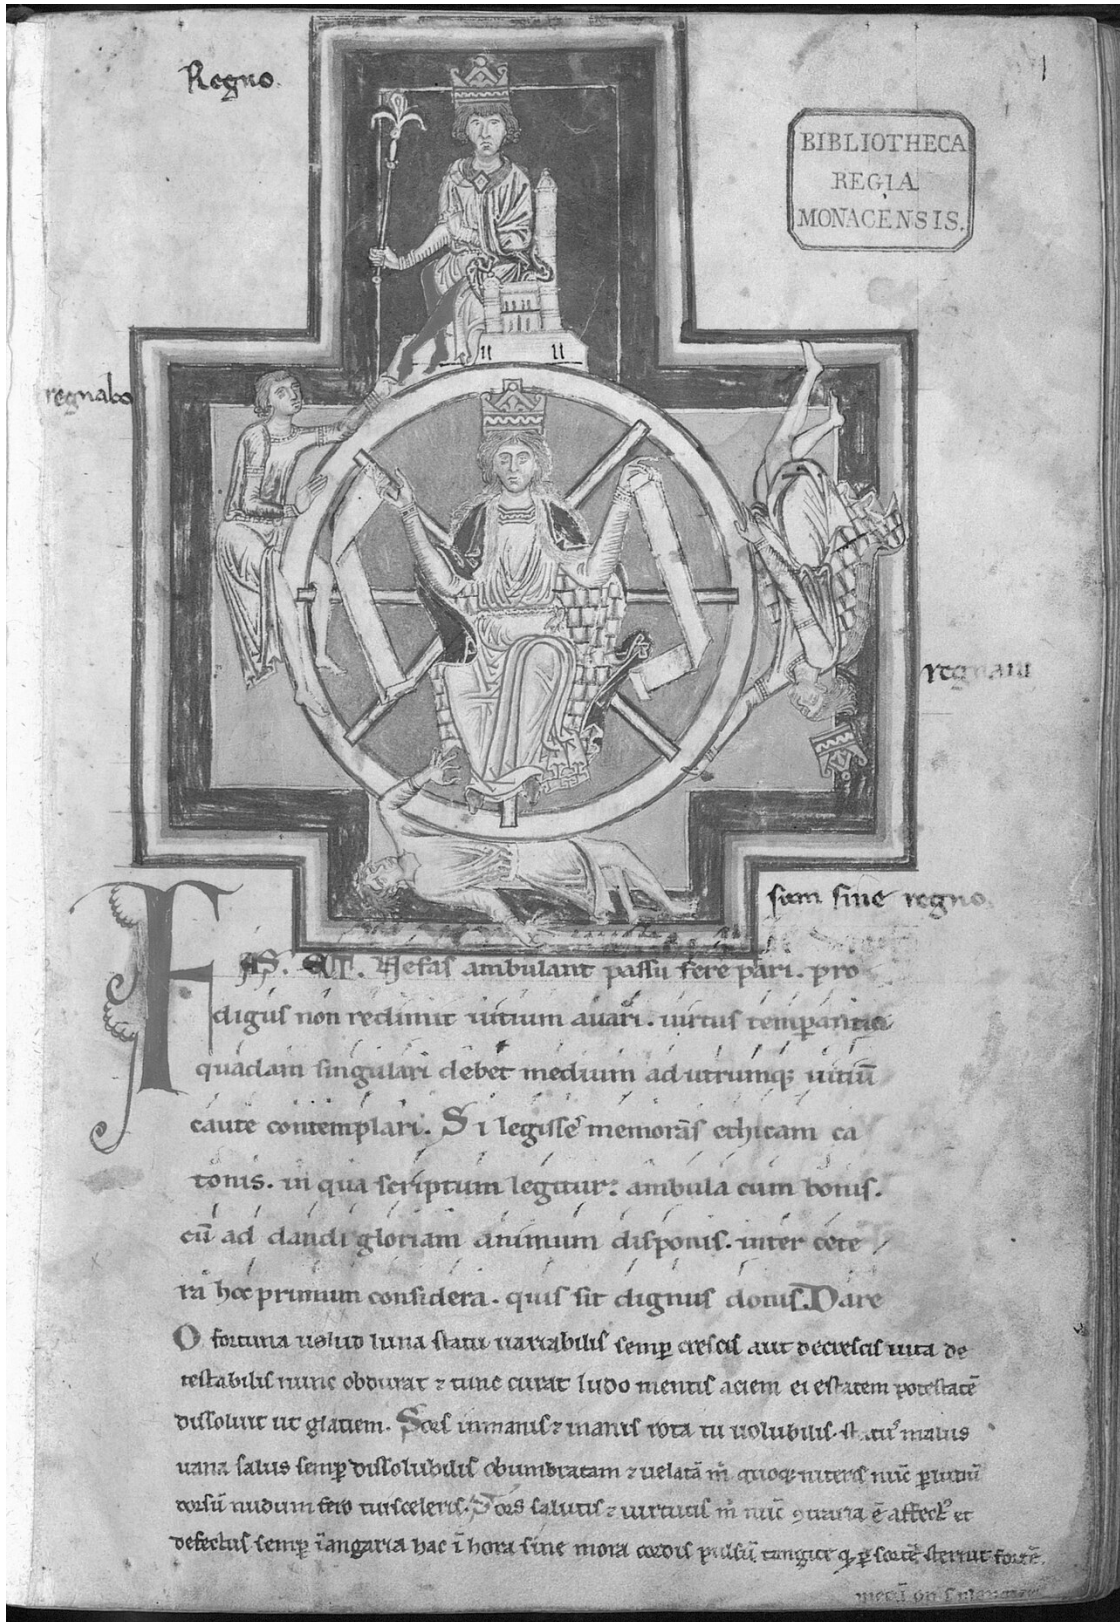 Regno.
1
BIBLIOTHECA
REGIA
MONACENSIS.
regnabo
regnaui
sum sine regno.
FAS. ET. Nefas ambulant passu fere pari. pro
digus non redimit uitium auari. uirtus temperantia
quadam singulari debet medium ad utrumq; uitiū
caute contemplari. Si legisse memoras ethicam ca
tonis. in qua scriptum legitur: ambula cum bonis.
cū ad dandi gloriam animum disponis. inter cete
ra hoc primum considera. quis sit dignus donis. Dare
O fortuna uelud luna statu uariabilis semp crescis aut decrescis uita de
testabilis nunc obdurat ⁊ tunc curat ludo mentis aciem egestatem potestatē
dissoluit ut glatiem. Sors inmanis ⁊ inanis rota tu uolubilis. statꝰ malus
uana salus semp dissolubilis obumbratam ⁊ uelatā m̄ quoq; niteris nūc p ludū
dorsū nudum fero tui sceleris. Sors salutis ⁊ uirtutis m̄ nūc ꝯtraria ē affectꝰ et
defectus semp ī angaria hac ī hora sine mora cordis pulsū tangite qͥ p sortē sternit fortē.